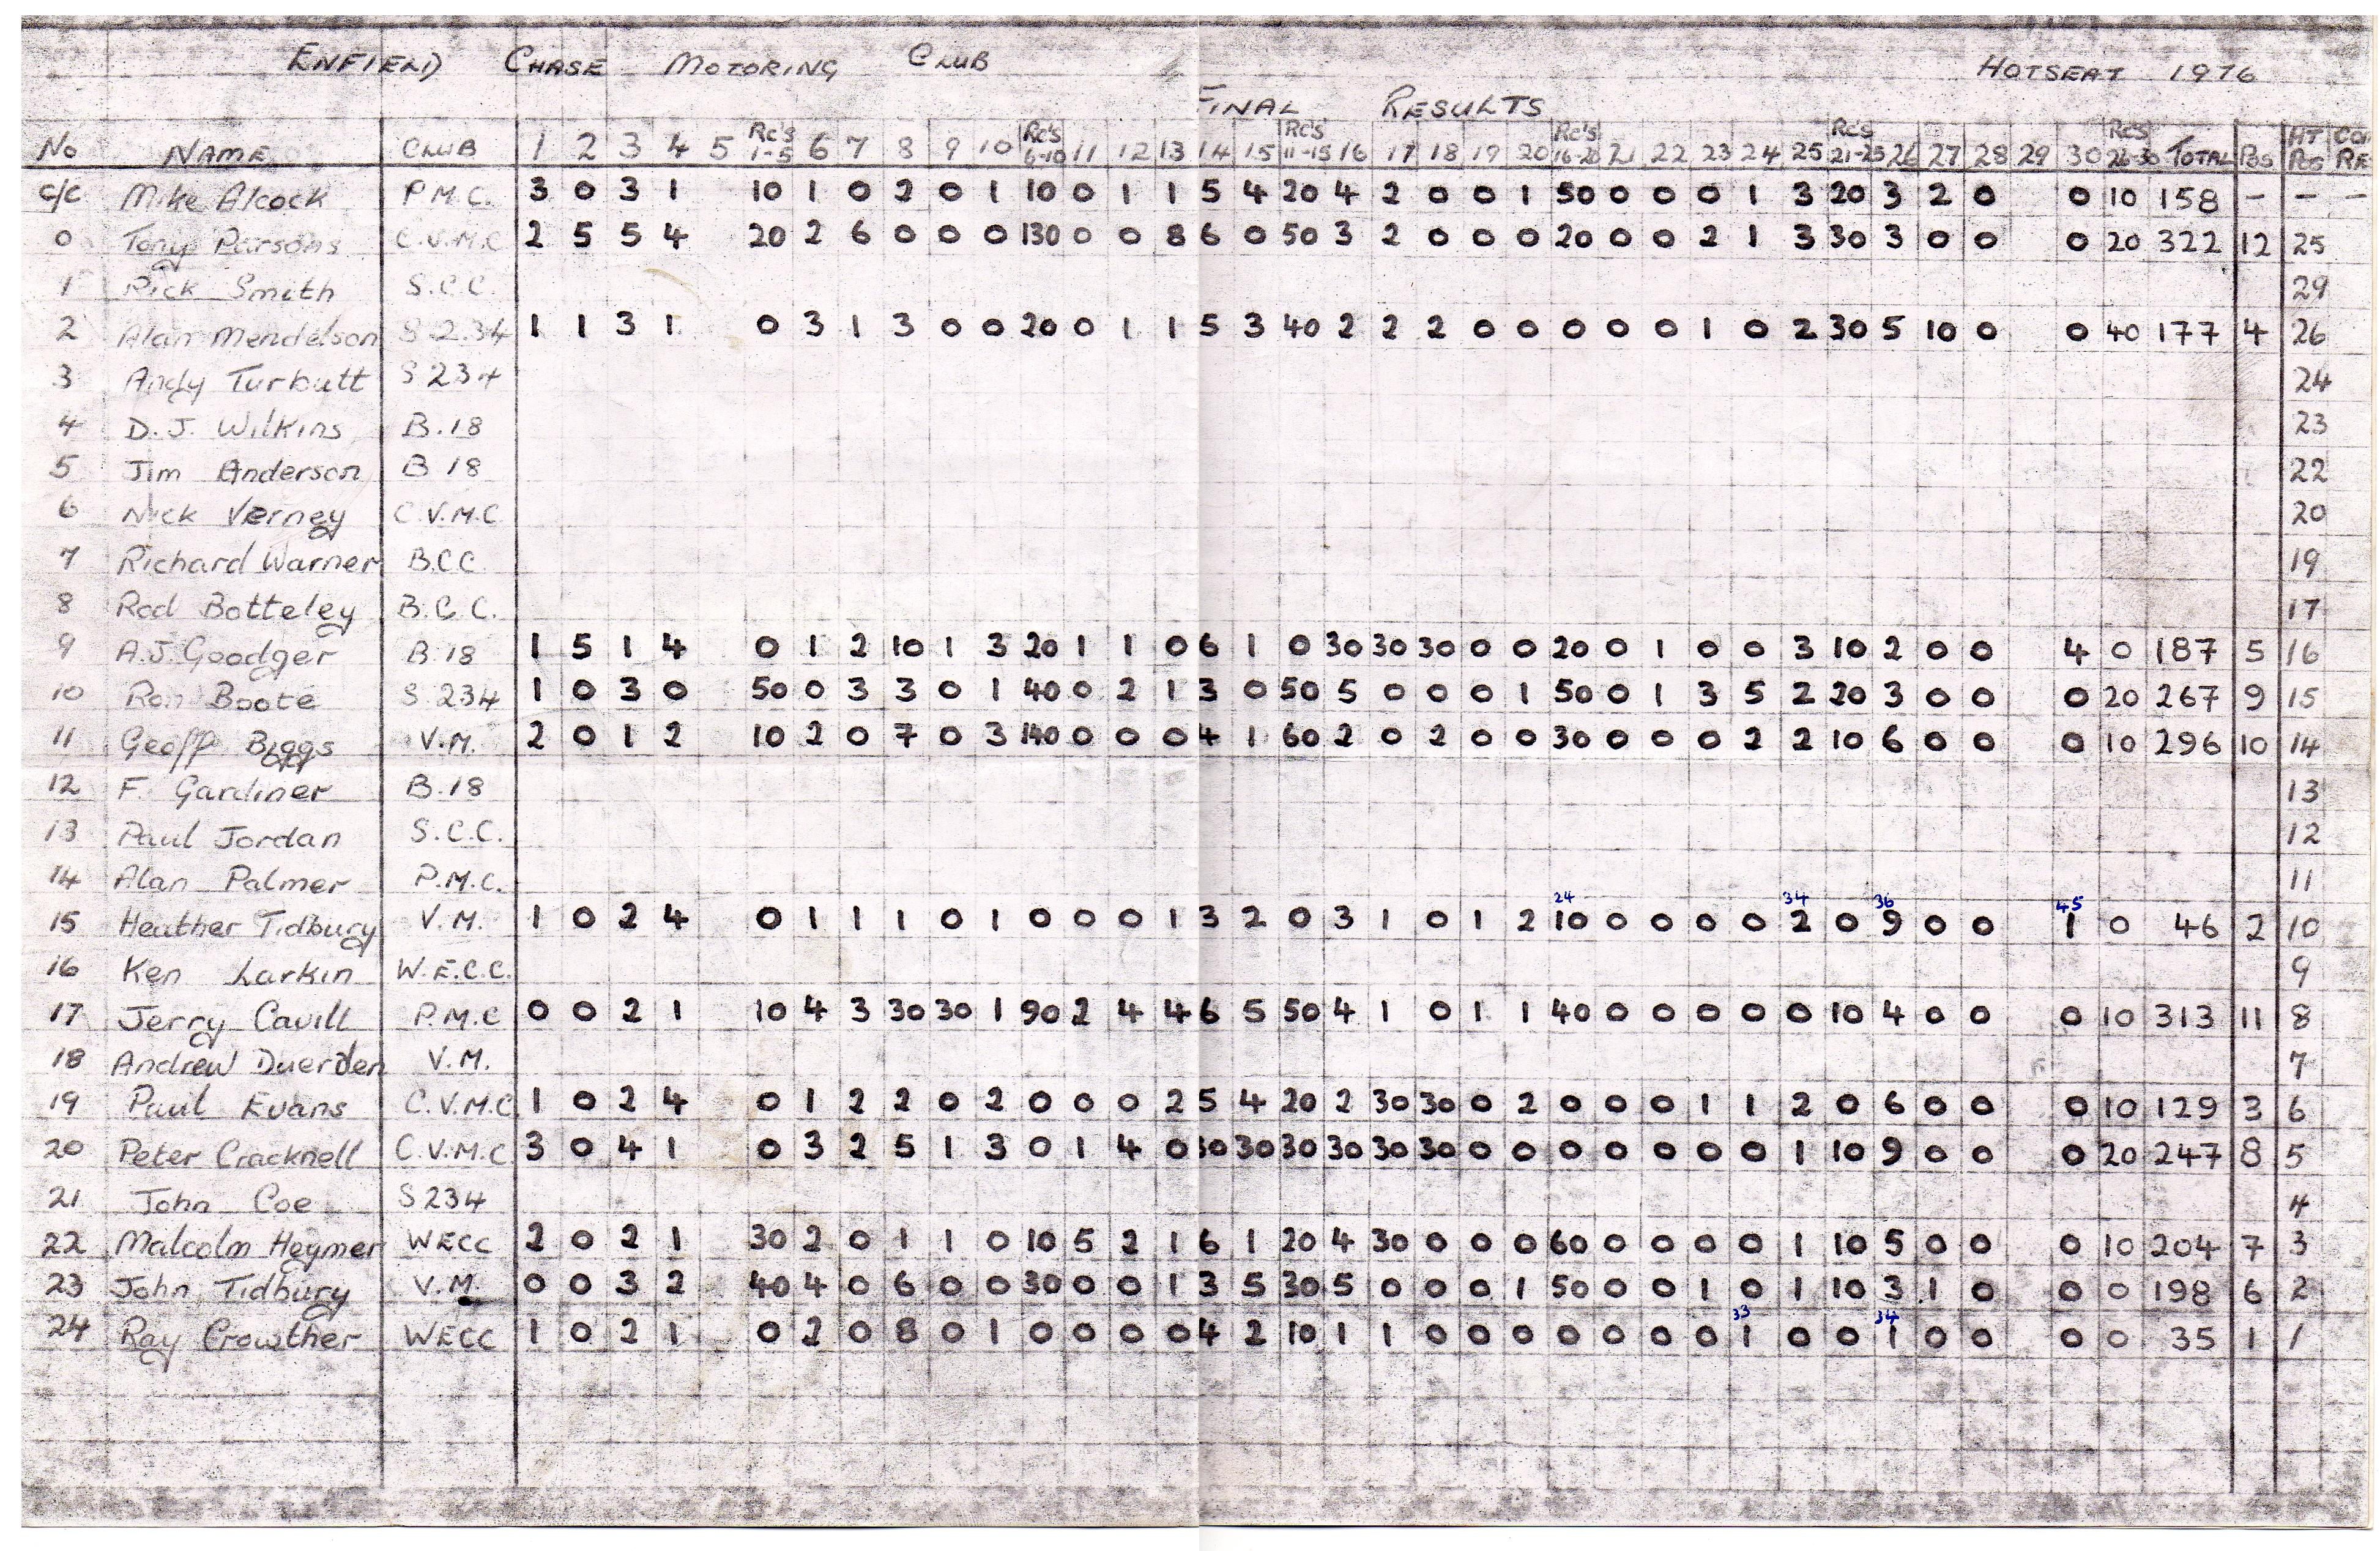 ENFIELD CHASE MOTORING CLUB HOTSEAT 1976
FINAL RESULTS
No NAME CLUB 1 2 3 4 5 Rc's 1-5 6 7 8 9 10 Rc's 6-10 11 12 13 14 15 Rc's 11-15 16 17 18 19 20 Rc's 16-20 21 22 23 24 25 Rc's 21-25 26 27 28 29 30 Rc's 26-30 TOTAL Pos HT Pos
c/c Mike Alcock P.M.C. 3 0 3 1 10 1 0 2 0 1 10 0 1 1 5 4 20 4 2 0 0 1 50 0 0 0 1 3 20 3 2 0 0 10 158 - - -
0 Tony Parsons C.V.M.C 2 5 5 4 20 2 6 0 0 0 130 0 0 8 6 0 50 3 2 0 0 0 20 0 0 2 1 3 30 3 0 0 0 20 322 12 25
1 Rick Smith S.C.C. 29
2 Alan Mendelson S 234 1 1 3 1 0 3 1 3 0 0 20 0 1 1 5 3 40 2 2 2 0 0 0 0 0 1 0 2 30 5 10 0 0 40 177 4 26
3 Andy Turbutt S 234 24
4 D.J. Wilkins B.18 23
5 Jim Anderson B 18 22
6 Nick Verney C.V.M.C 20
7 Richard Warner B.C.C 19
8 Rod Botteley B.C.C. 17
9 A.J. Goodger B.18 1 5 1 4 0 1 2 10 1 3 20 1 1 0 6 1 0 30 30 30 0 0 20 0 1 0 0 3 10 2 0 0 4 0 187 5 16
10 Ron Boote S 234 1 0 3 0 50 0 3 3 0 1 40 0 2 1 3 0 50 5 0 0 0 1 50 0 1 3 5 2 20 3 0 0 0 20 267 9 15
11 Geoff Biggs V.M. 2 0 1 2 10 2 0 7 0 3 140 0 0 0 4 1 60 2 0 2 0 0 30 0 0 0 2 2 10 6 0 0 0 10 296 10 14
12 F. Gardiner B.18 13
13 Paul Jordan S.C.C. 12
14 Alan Palmer P.M.C. 11
24 34 36 45
15 Heather Tidbury V.M. 1 0 2 4 0 1 1 1 0 1 0 0 0 1 3 2 0 3 1 0 1 2 10 0 0 0 0 2 0 9 0 0 1 0 46 2 10
16 Ken Larkin W.E.C.C. 9
17 Jerry Cavill P.M.C 0 0 2 1 10 4 3 30 30 1 90 2 4 4 6 5 50 4 1 0 1 1 40 0 0 0 0 0 10 4 0 0 0 10 313 11 8
18 Andrew Duerden V.M. 7
19 Paul Evans C.V.M.C. 1 0 2 4 0 1 2 2 0 2 0 0 0 2 5 4 20 2 30 30 0 2 0 0 0 1 1 2 0 6 0 0 0 10 129 3 6
20 Peter Cracknell C.V.M.C. 3 0 4 1 0 3 2 5 1 3 0 1 4 0 30 30 30 30 30 30 0 0 0 0 0 0 0 1 10 9 0 0 0 20 247 8 5
21 John Coe S 234 4
22 Malcolm Heymer WECC 2 0 2 1 30 2 0 1 1 0 10 5 2 1 6 1 20 4 30 0 0 0 60 0 0 0 0 1 10 5 0 0 0 10 204 7 3
23 John Tidbury V.M. 0 0 3 2 40 4 0 6 0 0 30 0 0 1 3 5 30 5 0 0 0 1 50 0 0 1 0 1 10 3 1 0 0 0 198 6 2
33 34
24 Ray Crowther WECC 1 0 2 1 0 2 0 8 0 1 0 0 0 0 4 2 10 1 1 0 0 0 0 0 0 0 1 0 0 1 0 0 0 0 35 1 1